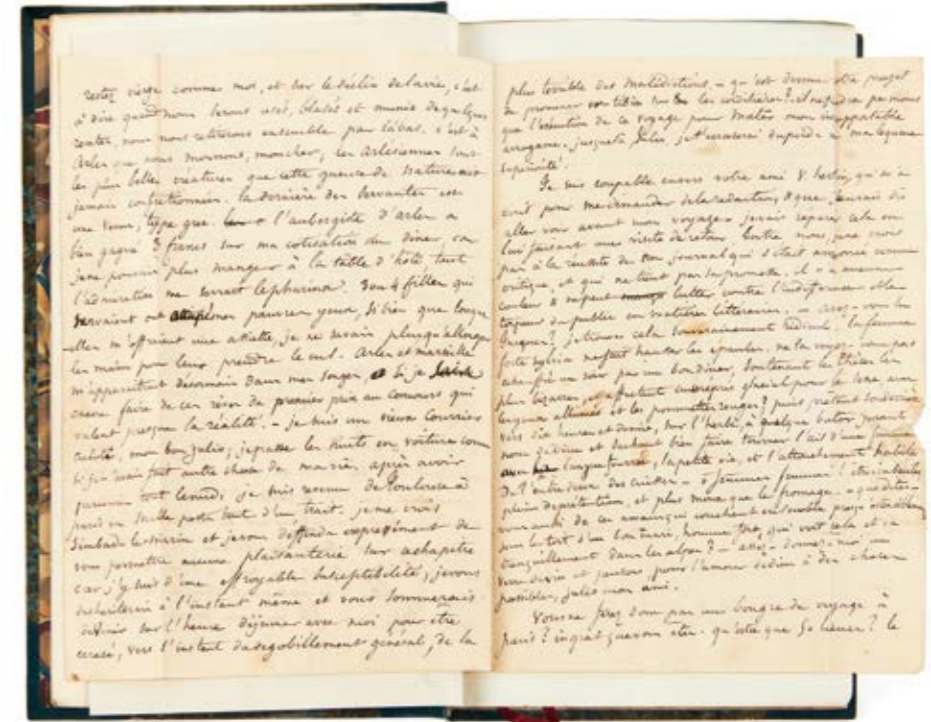 restez vierge comme moi, et sur le déclin de la vie, c'est
à dire quand nous serons usés, blasés et munis de quelques
rentes, nous nous retirerons ensemble par là bas. c'est à
Arles que nous mourrons, mon cher, les arlésiennes sont
les plus belles créatures que cette gueuse de nature ait
jamais confectionnées. la dernière des servantes est
une Vénus, type grec. l'aubergiste d'arles a
bien gagné 3 francs sur ma cotisation du dîner, car
je ne pouvais plus manger à la table d'hôte tant
l'admiration me serrait le pharinx. Son 4 filles qui
servaient ont pauvres yeux, si bien que lorsqu'
elles m'offraient une assiette, je ne savais plus qu'allonger
les mains pour leur prendre le cul. Arles et marseille
m'apparaitront désormais dans mes songes, si je
cesse faire de ces rêves de premier prix au concours qui
valent presque la réalité. - je suis un vieux courrier
mon bon Jules, je passe les nuits en voiture comme
si je n'avais fait autre chose de ma vie. après avoir
tout le midi, je suis revenu de Toulouse à
paris en malle poste tout d'un trait. je me crois
Simbad le marin et je vous défends expressément de
vous permettre aucune plaisanterie sur ce chapitre
car j'y suis d'une effroyable susceptibilité, je vous
déshériterais à l'instant même et vous sommerais
de venir sur l'heure déjeuner avec moi pour être
écrasé, vers l'instant du dégobillement général, de la
plus terrible des malédictions. - qu'est devenu votre projet
de promener vos tibias sur les cordillères? il ne faudra pas moins
que l'exécution de ce voyage pour mater mon insupportable
arrogance. jusques là, Jules, je t'écraserai du poids de ma longue
supériorité!
Je suis coupable envers votre ami V. qui m'a
écrit pour me demander de la rédaction, & que j'aurais dû
aller voir avant mon voyage. j'irais réparer cela en
lui faisant une visite de retour. Entre nous, je ne crois
pas à la réussite de son journal qui s'était annoncé comme
critique, et qui ne tient pas sa promesse. il n'a aucune
couleur & ne peut lutter contre l'indifférence et la
torpeur du public en matières littéraires. - avez-vous lu
Jacques? je trouve cela souverainement ridicule. la femme
forte sylvia me fait hausser les épaules. ne la voyez-vous pas
un soir par un bon dîner, soutenant les thèses les
plus bizarres, affectant un mépris glacial pour le sexe avec
les yeux allumés et les pommettes rouges? puis
vers dix heures et demie, sur l'herbe, à quelque butor jurant
nom et sachant bien faire tourner l'œil d'une femme
avec langue fourrée, la petite oie, et l'attouchement habile
de l'entre deux des cuisses. - ô femme, femme! être imbécile,
plein de prétention, et plus mou que le fromage. - que dites-
vous aussi de ces amans qui couchent ensemble presqu'ostensiblement
sous le toit d'un bon mari, homme fort, qui voit cela et va
tranquillement dans les alpes? - assez. - donnez-moi un
verre d'eau et parlons, pour l'amour de dieu à des choses
possibles, jules mon ami.
Vous ne ferez donc pas un bougre de voyage à
paris? ingrat que vous êtes. - qu'est ce que ça